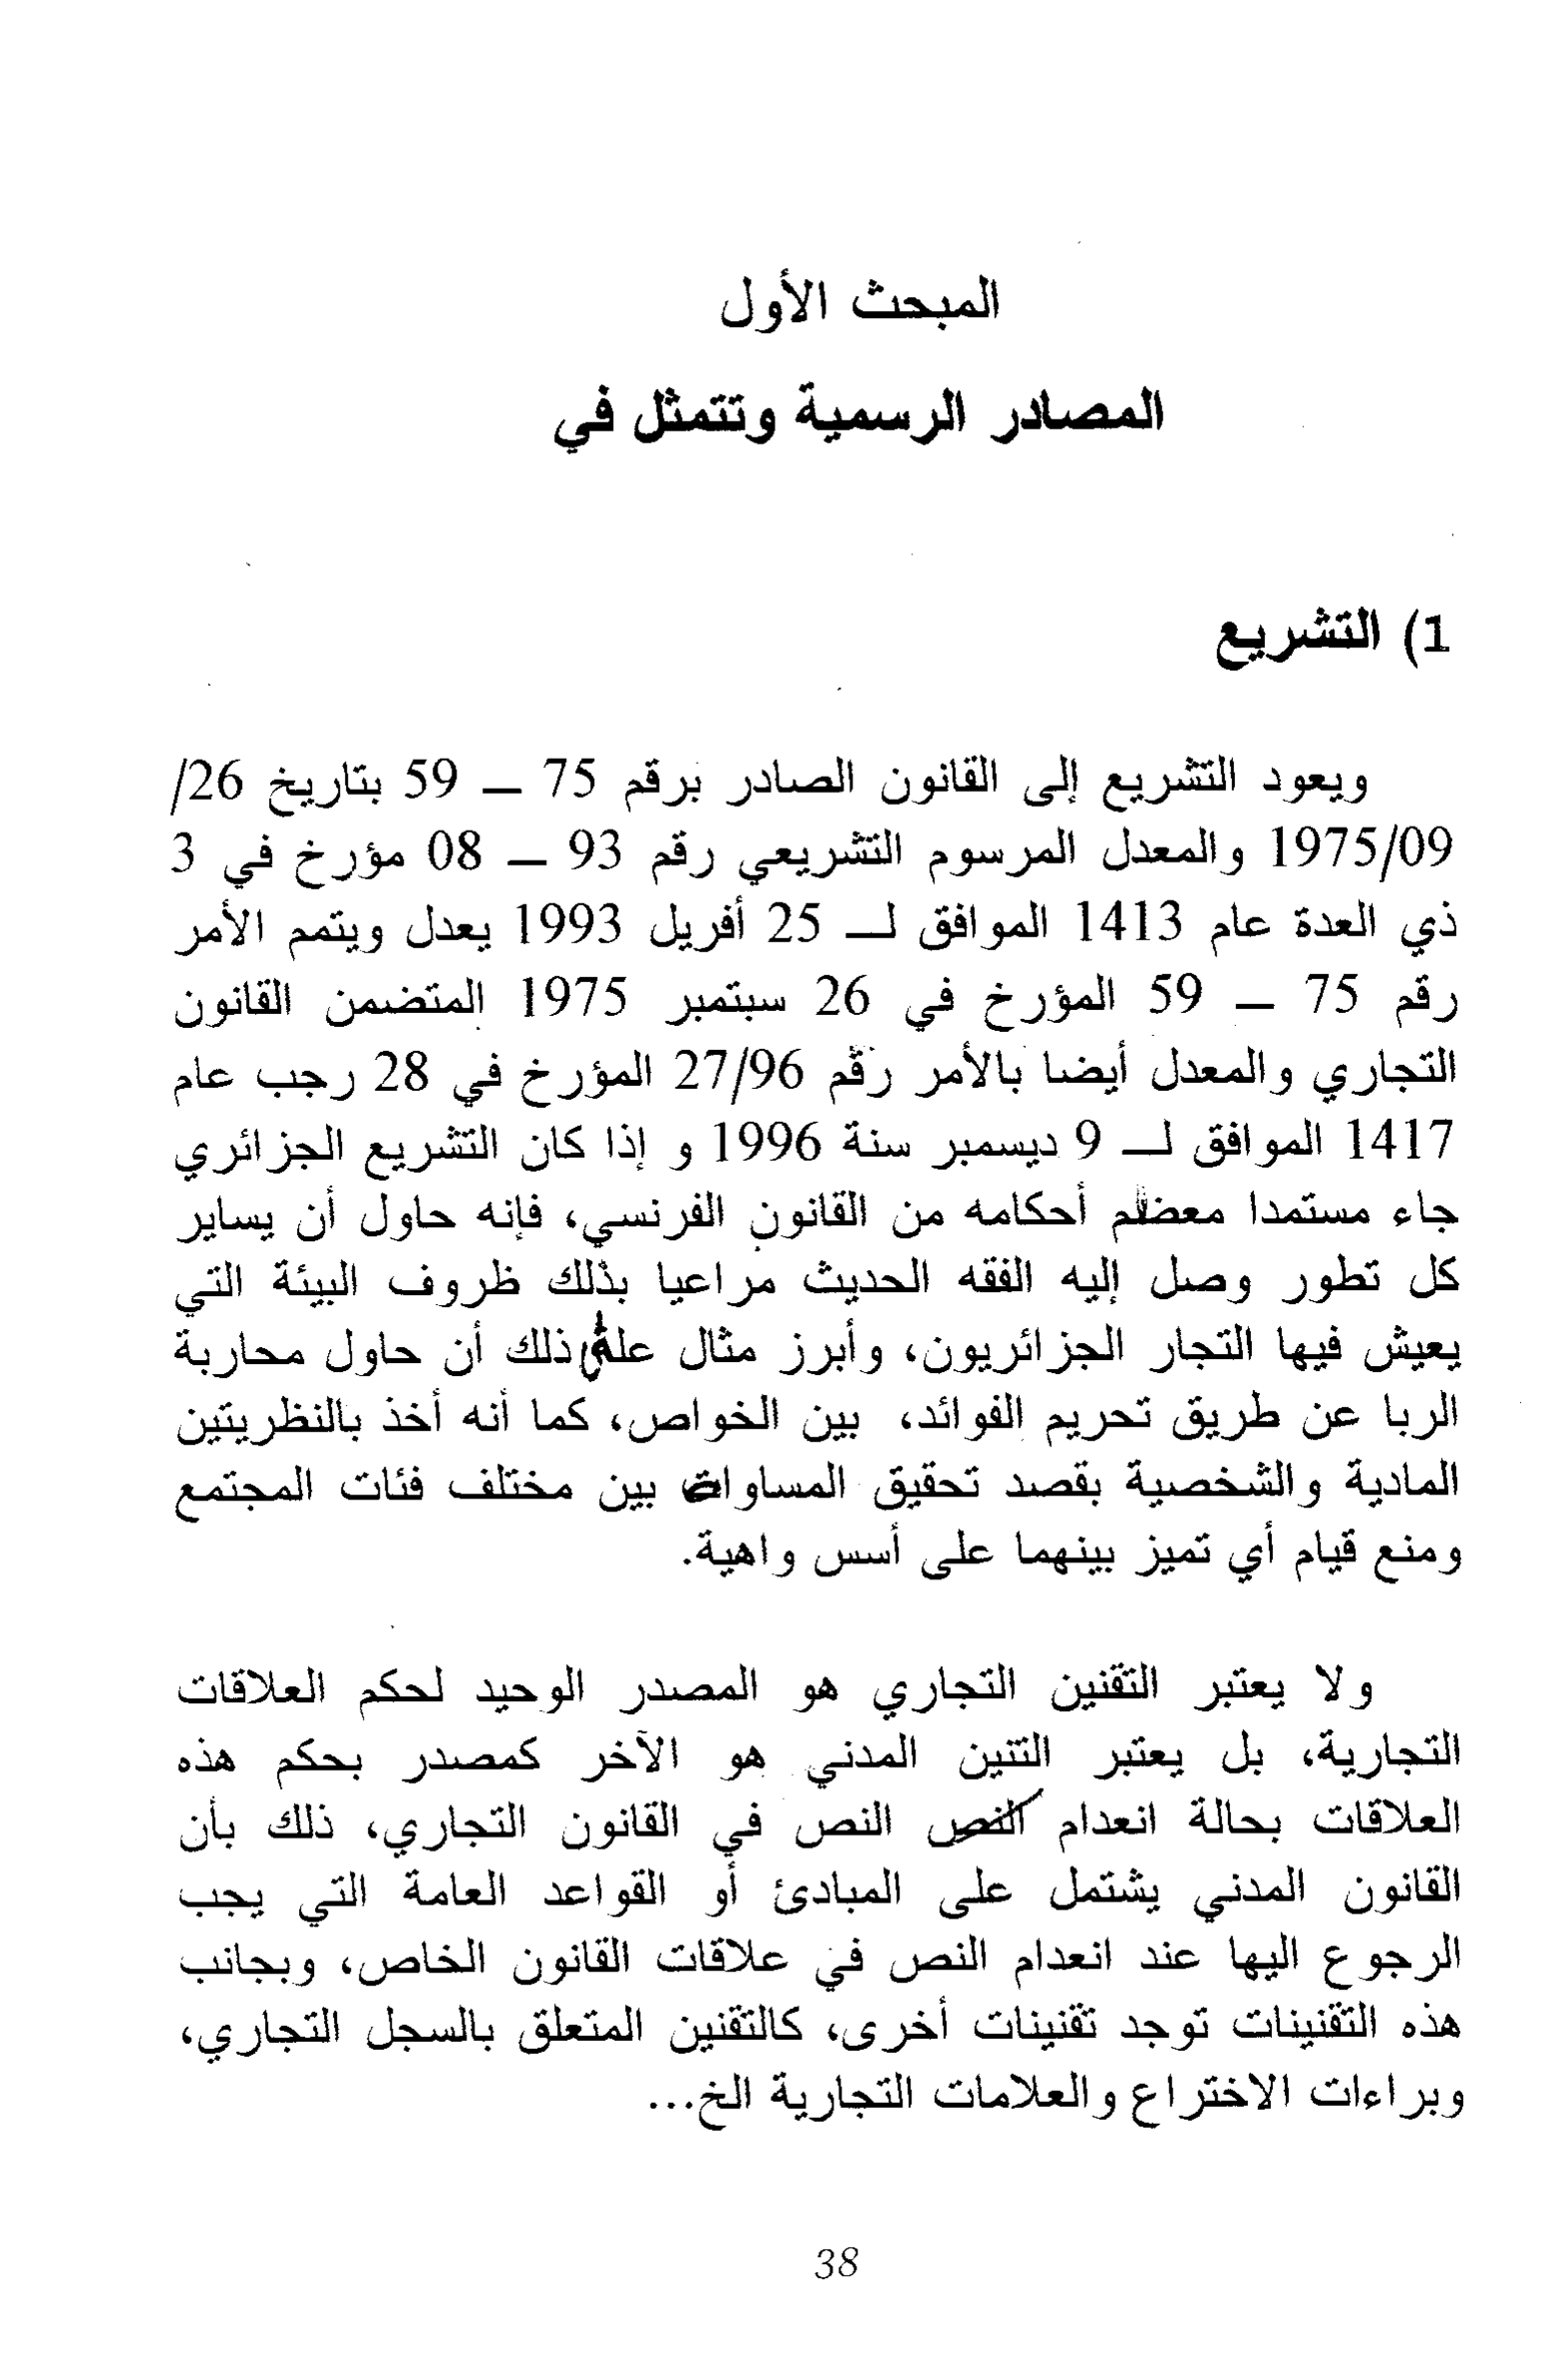 المبحث الأول
المصادر الرسمية وتتمثل في
1) التشريع
ويعود التشريع إلى القانون الصادر برقم 75 – 59 بتاريخ 26/
1975/09 والمعدل المرسوم التشريعي رقم 93 – 08 مؤرخ في 3
ذي العدة عام 1413 الموافق لـ 25 أفريل 1993 يعدل ويتمم الأمر
رقم 75 – 59 المؤرخ في 26 سبتمبر 1975 المتضمن القانون
التجاري والمعدل أيضا بالأمر رقم 27/96 المؤرخ في 28 رجب عام
1417 الموافق لـ 9 ديسمبر سنة 1996 و إذا كان التشريع الجزائري
جاء مستمدا أحكامه من القانون الفرنسي، فإنه حاول أن يساير
كل تطور وصل إليه الفقه الحديث مراعيا بذلك ظروف البيئة التي
يعيش فيها التجار الجزائريون، وأبرز مثال على ذلك أن حاول محاربة
الربا عن طريق تحريم الفوائد، بين الخواص، كما أنه أخذ بالنظريتين
المادية والشخصية بقصد تحقيق المساواة بين مختلف فئات المجتمع
ومنع قيام أي تميز بينهما على أسس واهية.
ولا يعتبر التقنين التجاري هو المصدر الوحيد لحكم العلاقات
التجارية، بل يعتبر التتنين المدني هو الآخر كمصدر بحكم هذه
العلاقات بحالة انعدام النص النص في القانون التجاري، ذلك بأن
القانون المدني يشتمل على المبادئ أو القواعد العامة التي يجب
الرجوع اليها عند انعدام النص في علاقات القانون الخاص، وبجانب
هذه التقنينات توجد تقنينات أخرى، كالتقنين المتعلق بالسجل التجاري،
وبراءات الاختراع والعلامات التجارية الخ...
38